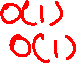 O(1)
O(1)